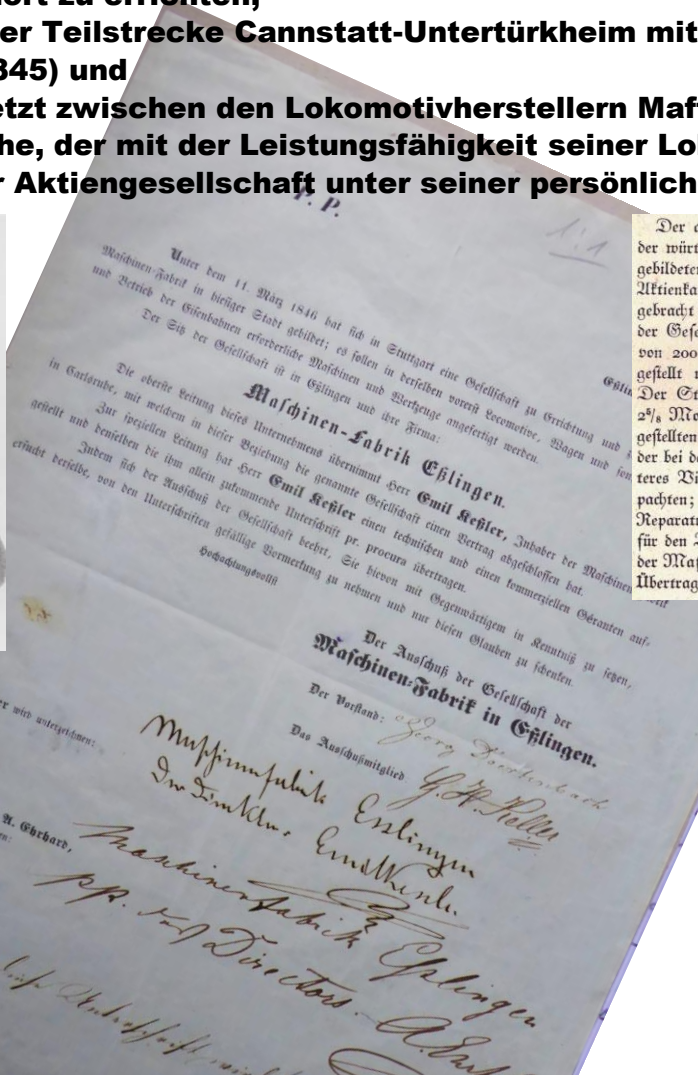 zu errichten,
er Teilstrecke Cannstatt-Untertürkheim mit
845) und
etzt zwischen den Lokomotivherstellern Maf
he, der mit der Leistungsfähigkeit seiner Lo
r Aktiengesellschaft unter seiner persönlich
P. P.
1:1
Eßlin
Unter dem 11. März 1846 hat sich in Stuttgart eine Gesellschaft zu Errichtung und
Maschinen-Fabrik in hiesiger Stadt gebildet; es sollen in derselben vorerst Locomotive, Wagen und son
und Betrieb der Eisenbahnen erforderliche Maschinen und Werkzeuge angefertigt werden.
Der Sitz der Gesellschaft ist in Eßlingen und ihre Firma:
Maschinen-Fabrik Eßlingen.
Die oberste Leitung dieses Unternehmens übernimmt Herr Emil Keßler, Inhaber der Maschinen
in Carlsruhe, mit welchem in dieser Beziehung die genannte Gesellschaft einen Vertrag abgeschlossen hat.
Zur speziellen Leitung hat Herr Emil Keßler einen technischen und einen kommerziellen Géranten auf-
gestellt und denselben die ihm allein zukommende Unterschrift pr. procura übertragen.
Indem sich der Ausschuß der Gesellschaft beehrt, Sie hievon mit Gegenwärtigem in Kenntniß zu setzen,
ersucht derselbe, von den Unterschriften gefällige Vormerkung zu nehmen und nur diesen Glauben zu schenken.
Hochachtungsvollst
Der Ausschuß der Gesellschaft der
Maschinen-Fabrik in Eßlingen.
Der Vorstand: Georg Doertenbach
Das Ausschußmitglied G. H. Keller
er wird unterzeichnen:
Maschinenfabrik Esslingen
Der Direktor
A. Ehrhard,
en:
Maschinenfabrik Eßlingen
pp. des Directors.
Der a
der würt
gebildeten
Aktienka
gebracht
der Gese
von 200
gestellt
Der St
2⁵/₈ Mo
gestellten
der bei de
teres Vi
pachten;
Reparatu
für den
der Maf
Übertrag